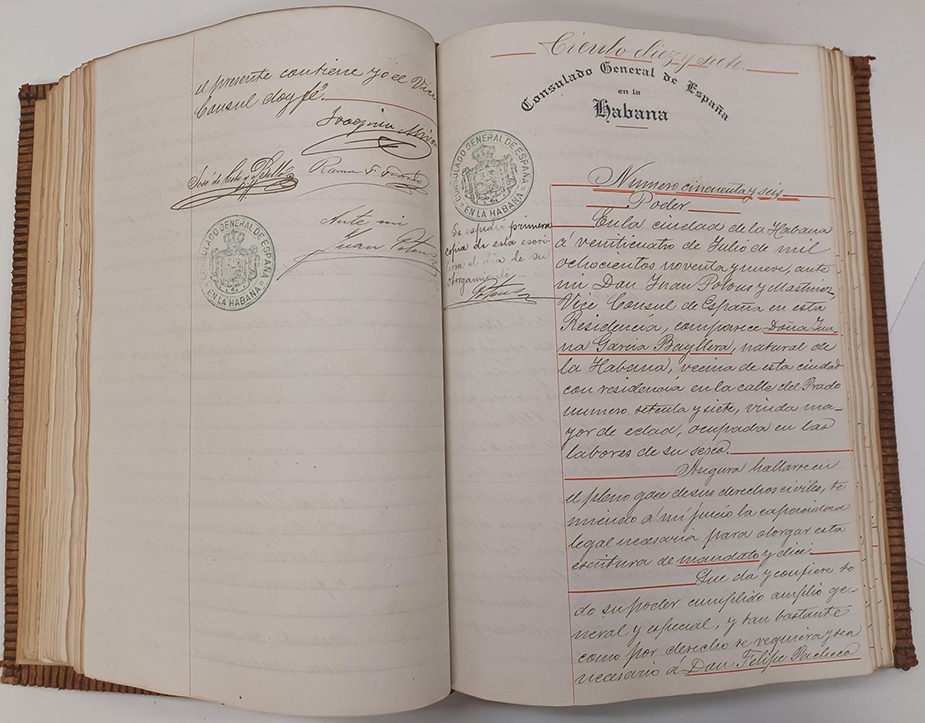 el presente contiene yo el Vice
Consul doy fé.
Joaquin
José de
Ramon F.
Ante mi
Juan Potous
CONSULADO GENERAL DE ESPAÑA
EN LA HABANA
Ciento diez y siete.
Consulado General de España
en la
Habana
CONSULADO GENERAL DE ESPAÑA
EN LA HABANA
Se espidió primera
copia de esta escri-
tura el dia de su
otorgamiento.
Potous
Numero cincuenta y seis
Poder
En la ciudad de la Habana
á veinticuatro de Julio de mil
ochocientos noventa y nueve, ante
mi Don Juan Potous y Martinez,
Vice Consul de España en esta
Residencia, comparece Doña Jua-
na Garcia Bayllera, natural de
la Habana, vecina de esta ciudad
con residencia en la calle del Prado
numero setenta y siete, viuda ma-
yor de edad, ocupada en las
labores de su sexo.
Asegura hallarse en
el pleno goce de sus derechos civiles, te
niendo á mi juicio la capacidad
legal necesaria para otorgar esta
escritura de mandato y dice.
Que da y confiere to
do su poder cumplido amplio ge-
neral y especial, y tan bastante
como por derecho se requiera y sea
necesario á Don Felipe Pacheco